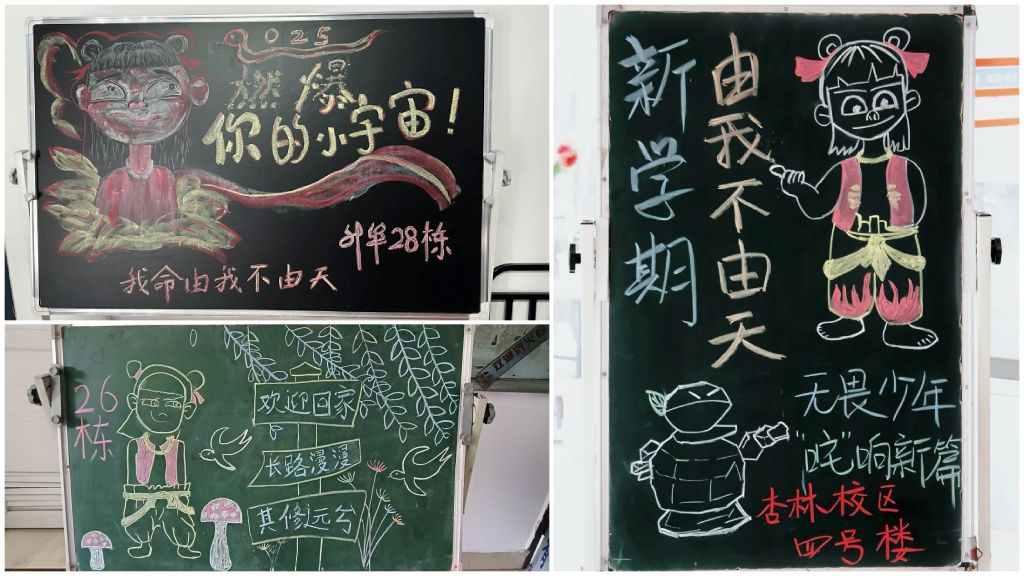 2025
燃爆
你的小宇宙!
升华28栋
我命由我不由天
26
栋
欢迎回家
长路漫漫
其修远兮
新学期
由我不由天
无畏少年
"咤"响新篇
杏林校区
四号楼